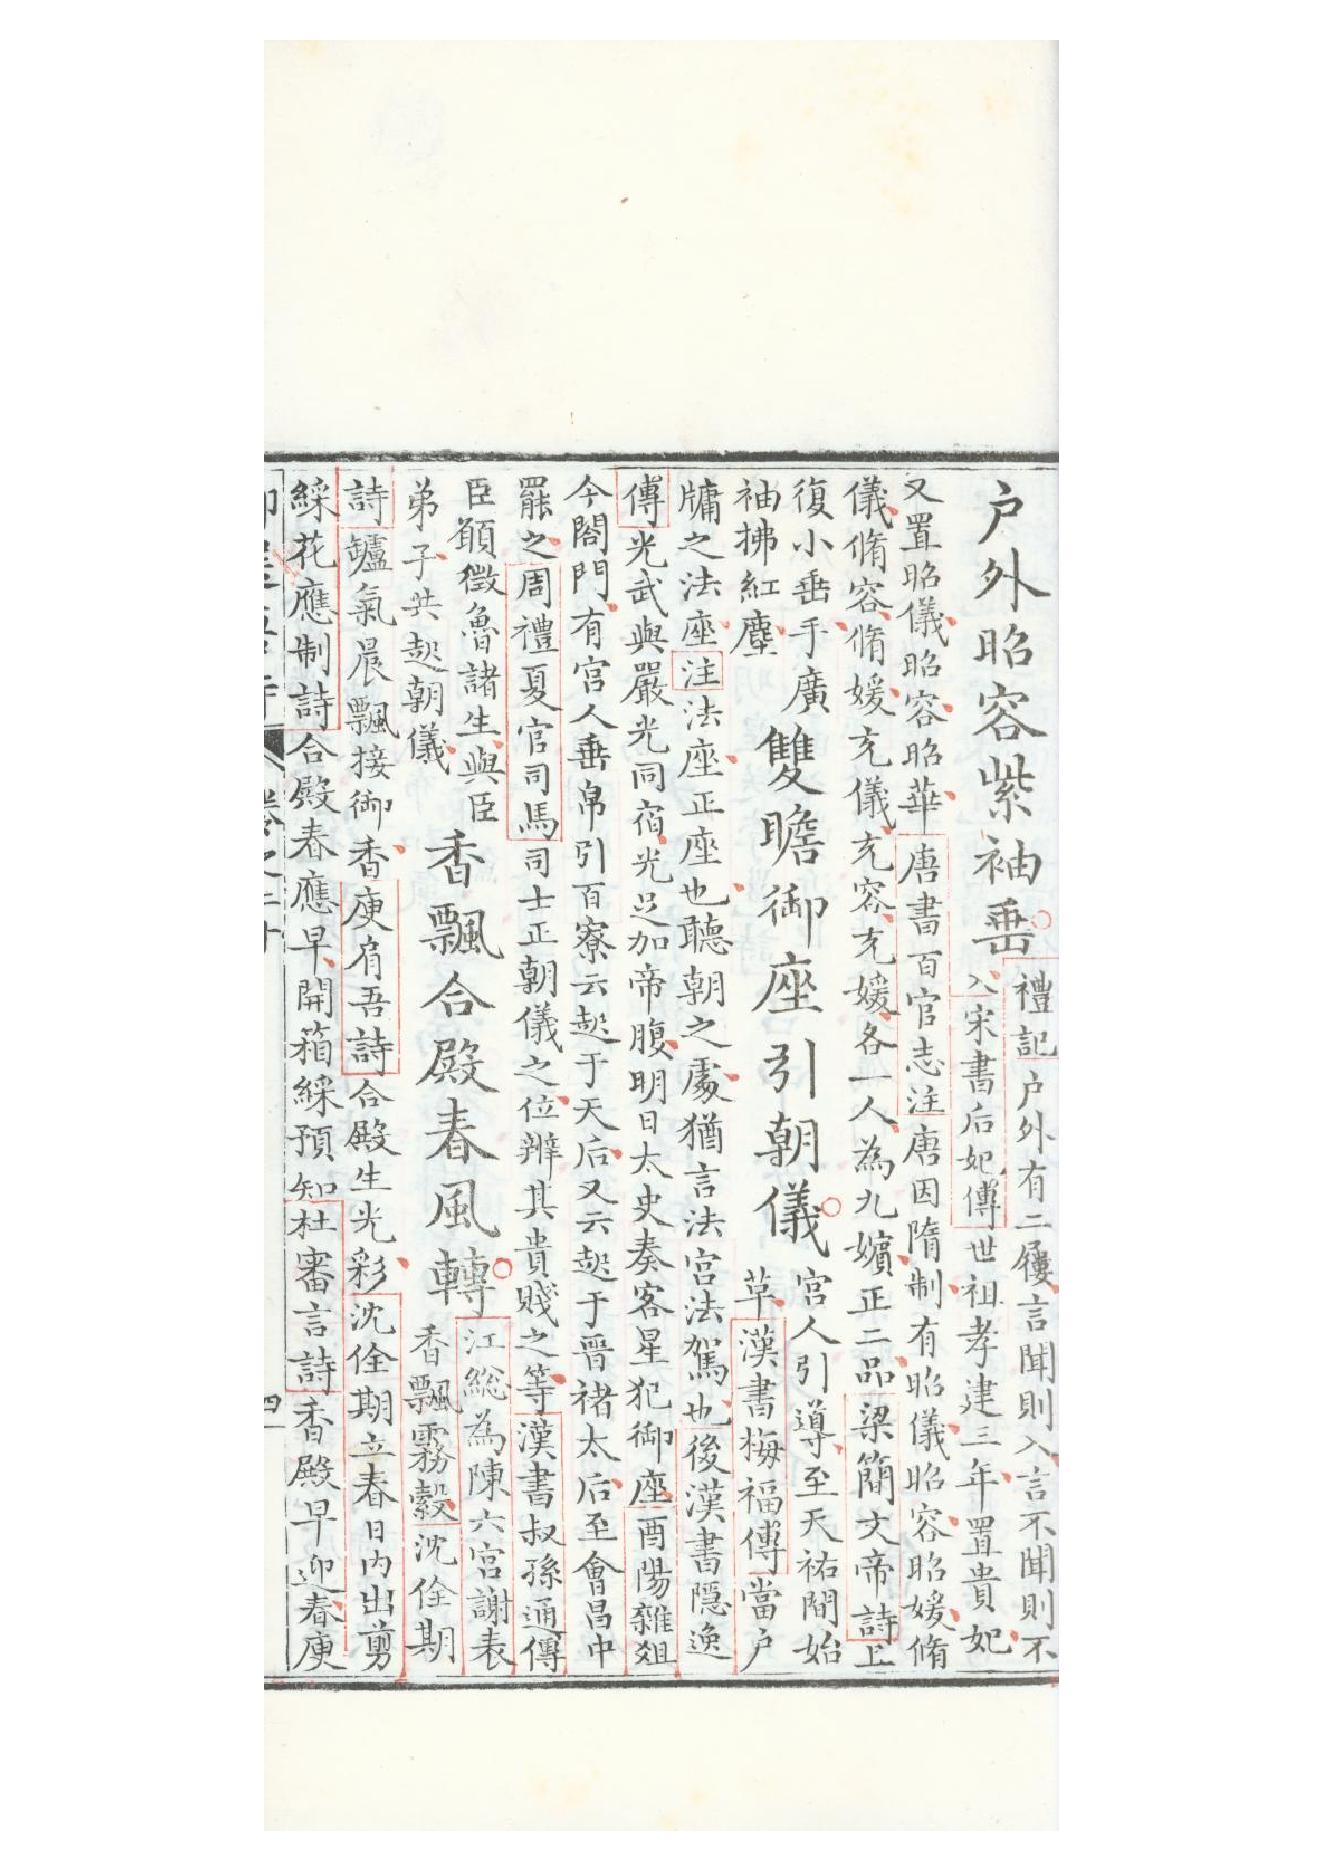 戶外昭容紫袖垂
禮記戶外有二屨言聞則入言不聞則不
入宋書后妃傳世祖孝建三年置貴妃
又置昭儀昭容昭華唐書百官志注唐因隋制有昭儀昭容昭媛脩
儀脩容脩媛充儀充容充媛各一人為九嬪正二品梁簡文帝詩上
復小垂手廣
袖拂紅塵
雙瞻御座引朝儀
宮人引導至天祐閒始
革漢書梅福傳當戶
牖之法座注法座正座也聽朝之處猶言法宮法駕也後漢書隱逸
傳光武與嚴光同宿光足加帝腹明日太史奏客星犯御座酉陽雜俎
今閤門有宮人垂帛引百寮云起于天后又云起于晉褚太后至會昌中
罷之周禮夏官司馬司士正朝儀之位辨其貴賤之等漢書叔孫通傳
臣願徵魯諸生與臣
弟子共起朝儀
香飄合殿春風轉
江總為陳六宮謝表
香飄霧縠沈佺期
詩鑪氣晨飄接御香庾肩吾詩合殿生光彩沈佺期立春日內出剪
綵花應制詩合殿春應早開箱綵預知杜審言詩香殿早迎春庾